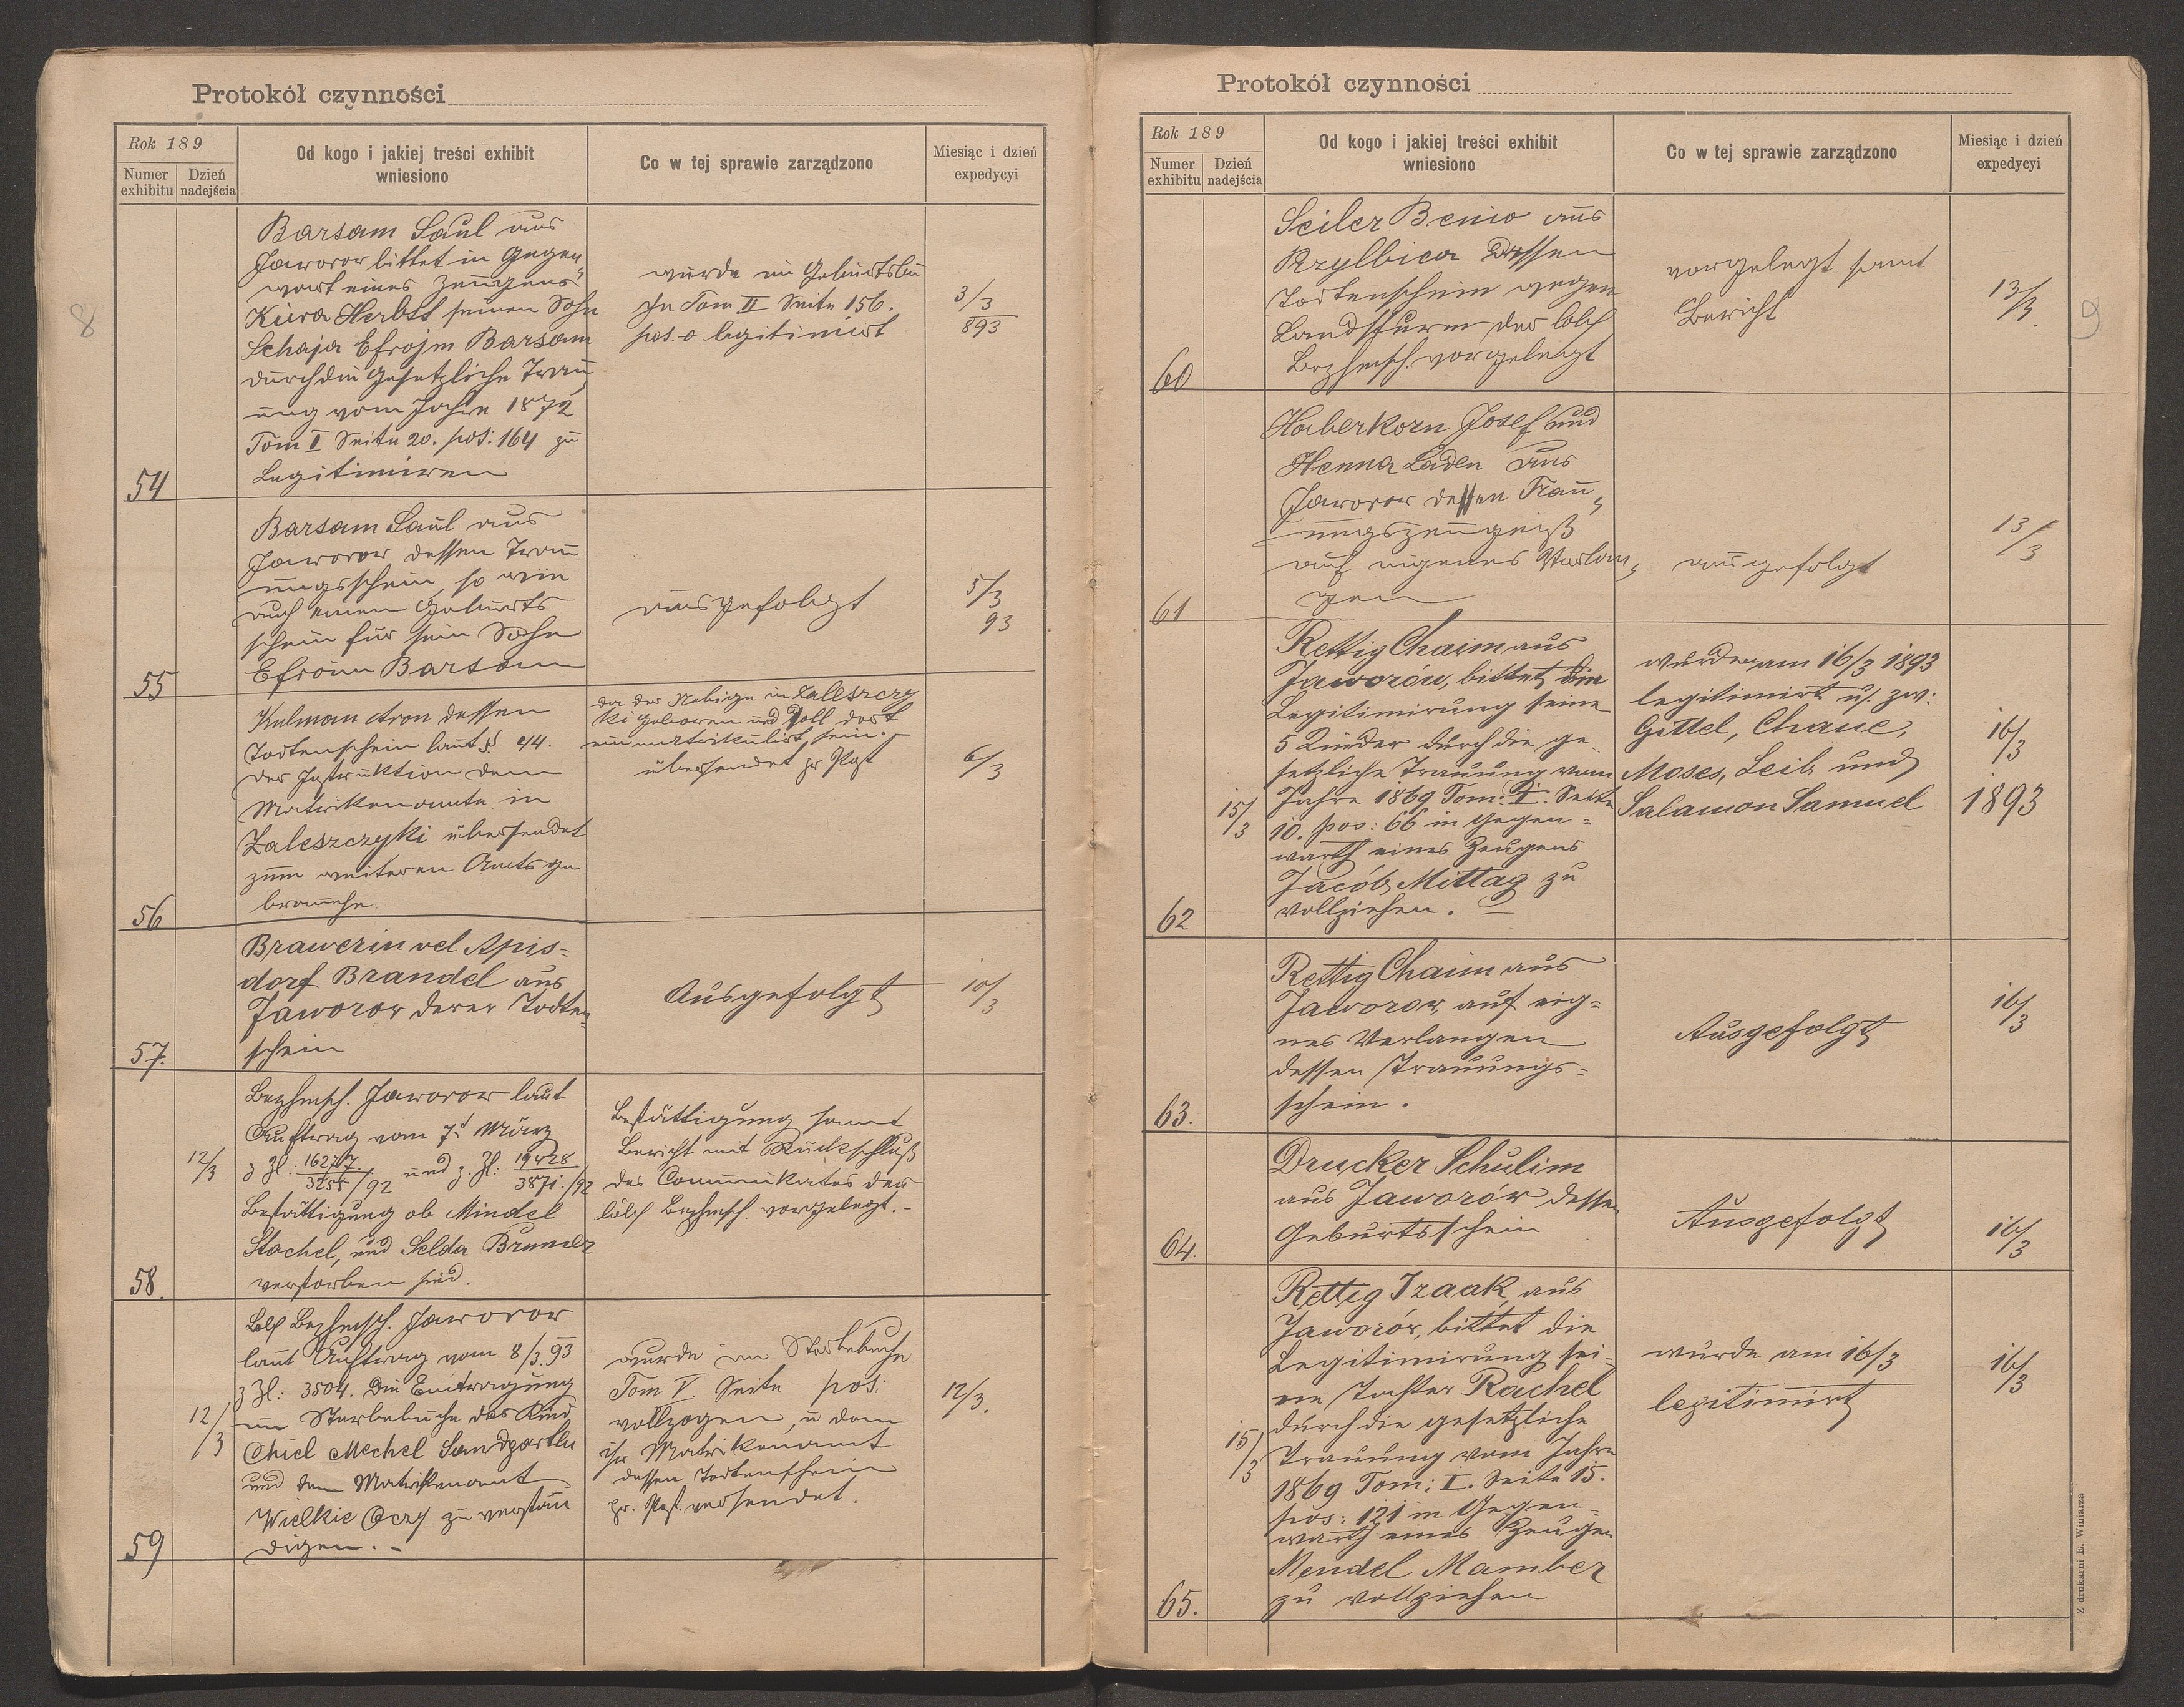 Protokół czynności
Rok 189
Numer exhibitu
Dzień nadejścia
Od kogo i jakiej treści exhibit wniesiono
Co w tej sprawie zarządzono
Miesiąc i dzień expedycyi
8
54
Barsam Saul aus
Jaworow bittet in Gegen„
wart eines Zeugens
Kiwa Herbst seinen Sohn
Schaja Efrojm Barsam
durch die gesetzliche Trau„
ung vom Jahre 1872
Tom I Seite 20. pos: 164 zu
Legitimiren
wurde im Geburtsbu
Tom II Seite 156.
pos. legitimirt
3/3
893
55
Barsam Saul aus
Jaworow dessen Trau
ungsschein, so wie
auch einen Geburts
schein für sein Sohn
Efroim Barsam
ausgefolgt
5/3
93
56
Kulman Aron dessen
Todtenschein laut §
der Instruktion dem
Matrikenamte in
Zaleszczyki übersendet
zum weiteren Amts ge
brauche
da der Nebige in Zaleszczy
ki geboren und soll dort
immatrikulirt sein.
übersendet pr Post
6/3
57.
Brawerin vel Apis=
dorf Brandel aus
Jaworow derer Todten=
schein
Ausgefolgt
10/3
58.
12/3
Bezhmsch. Jaworow laut
Auftrag vom 7t März
z Zl: 16277/3255/92 und z. Zl: 19428/3871./92
Bestättigung ob Mindel
Stachel, und Selda Brumer
verstorben sind.
Bestättigung samt
Bericht mit Rückschluß
des Communikates der
löbl Bezhmsch. vorgelegt.-
59
12/3
Löbl Bezhmsch. Jaworow
laut Auftrag vom 8/3.93
z Zl: 3504. Die Eintragung
im Sterbebuche des Kind
Chiel Mechel
und dem Matrikenamt
Wielkie Oczy zu verstän
digen.-
wurde im Sterbebuche
Tom V. Seite pos:
vollzogen, u dem
isr Matrikenamt
dessen Todtenschein
pr. Post. versendet.
12/3.
Protokół czynności
Rok 189
Numer exhibitu
Dzień nadejścia
Od kogo i jakiej treści exhibit wniesiono
Co w tej sprawie zarządzono
Miesiąc i dzień expedycyi
9
60
Seiler Benio aus
dessen
Todtenschein wegen
Landsturm der löbl
Bezhmsch. vorgelegt
vorgelegt samt
Bericht
13/3.
61
Haberkorn Josef und
Henna Laden aus
Jaworow dessen Trau„
ungszeugniß
auf eigenes Verlan„
gen
ausgefolgt
13/3
62
15/3
Rettig Chaim aus
Jaworów, bittet die
Legitimirung seine
5 Kinder durch die ge=
setzliche Trauung vom
Jahre 1869 Tom: I. Seite
10. pos: 66 in Gegen=
warth eines Zeugens
Jacób Mittag zu
vollziehen.
wurden am 16/3 1893
legitimirt u. zw:
Gittel, Chane,
Moses, Leib und
Salamon Samuel
16/3
1893
63.
Rettig Chaim aus
Jaworow, auf eig=
nes Verlangen
dessen Trauungs=
schein.
Ausgefolgt
16/3
64.
Drucker Schulim
aus Jaworów dessen
Geburtsschein
Ausgefolgt
16/3
65.
15/3
Rettig Izaak, aus
Jaworów, bittet die
Legitimirung sei=
ne Tochter Rachel
durch die gesetzliche
Trauung vom Jahre
1869 Tom: I. Seite 15.
pos: 121 in Gegen=
warth eines Zeugen
Mendel Mamber
zu vollziehen
wurde am 16/3
legitimirt
16/3
Z drukarni E. Winiarza